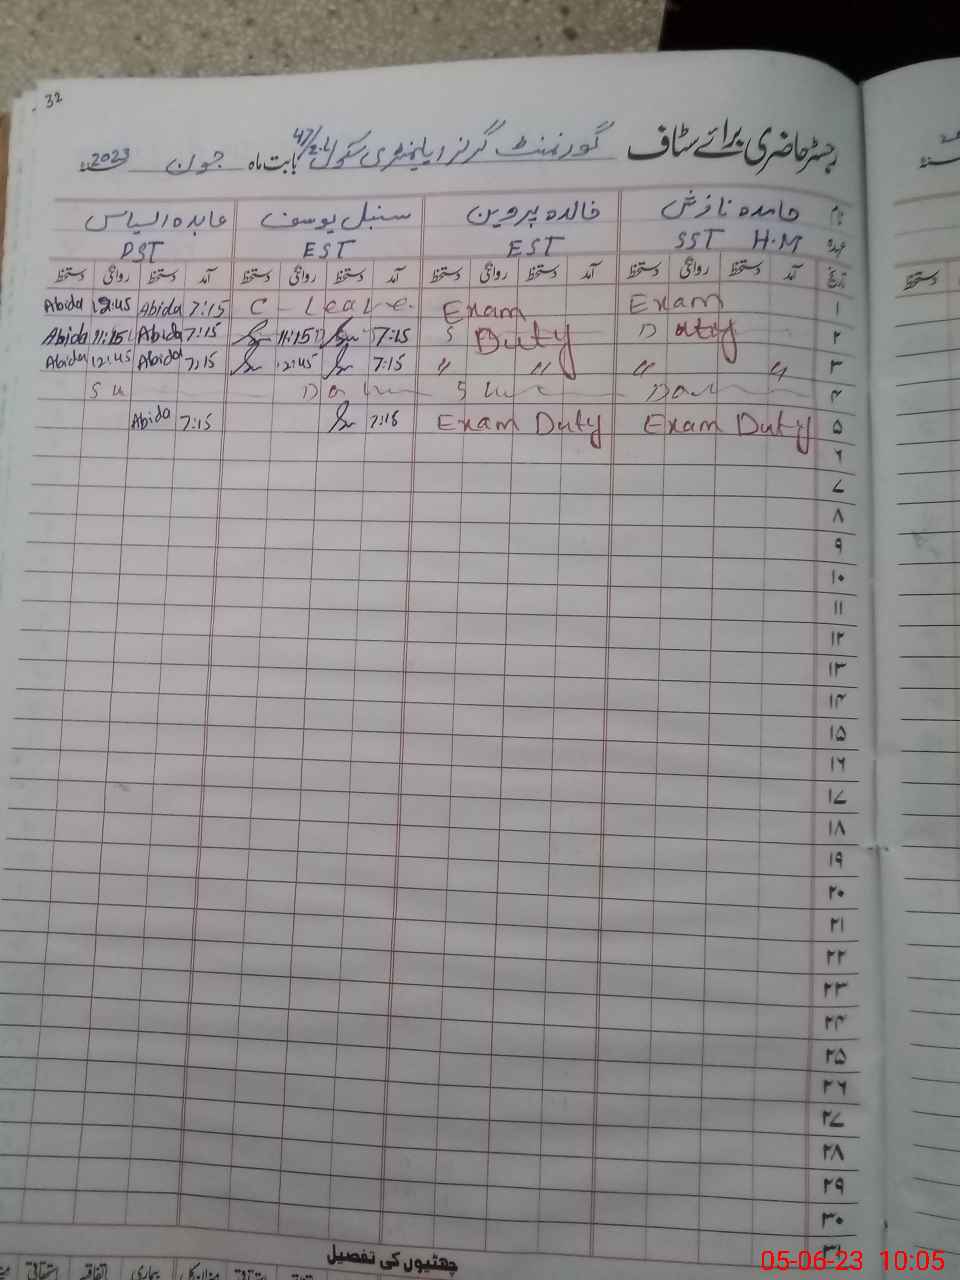 32
رجسٹر حاضری برائے سٹاف گورنمنٹ گرلز ایلیمنٹری سکول 47/2.L بابت ماہ جون 2023 سنہ
نام حامدہ نازش خالدہ پروین سنبل یوسف عابدہ الیاس
عہدہ SST H.M EST EST PST
تاریخ آمد دستخط روانگی دستخط آمد دستخط روانگی دستخط آمد دستخط روانگی دستخط آمد دستخط روانگی دستخط
۱ Exam Exam C - Leave 7:15 Abida 12:45 Abida
۲ Duty Duty 7:15 11:15 7:15 Abida 11:15 Abida
۳ " " " " 7:15 12:45 7:15 Abida 12:45 Abida
۴ Day Sun Day Su
۵ Exam Duty Exam Duty 7:15 7:15 Abida
۶
۷
۸
۹
۱۰
۱۱
۱۲
۱۳
۱۴
۱۵
۱۶
۱۷
۱۸
۱۹
۲۰
۲۱
۲۲
۲۳
۲۴
۲۵
۲۶
۲۷
۲۸
۲۹
۳۰
۳۱
چھٹیوں کی تفصیل
اتفاقیہ بیماری استحقاقی
05-06-23 10:05